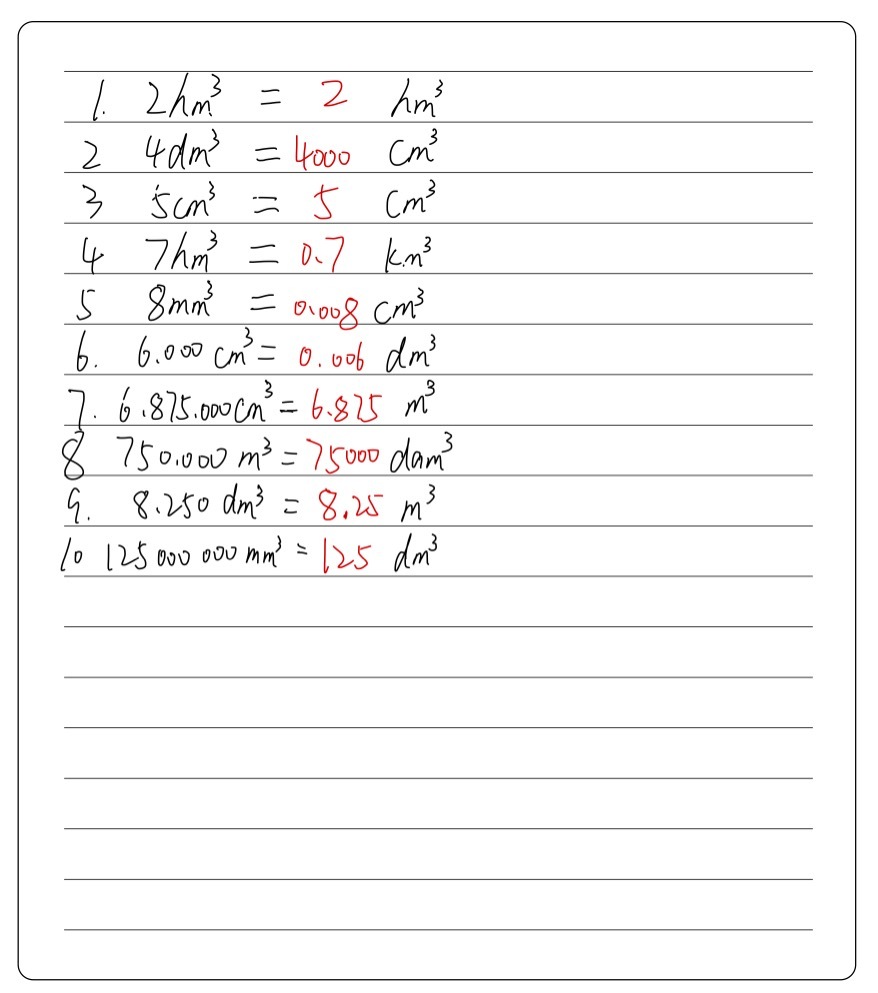 1. 2hm³ = 2 hm³
2 4dm³ = 4000 cm³
3 5cm³ = 5 cm³
4 7hm³ = 0.7 km³
5 8mm³ = 0.008 cm³
6. 6.000 cm³ = 0.006 dm³
7. 6.875.000 cm³ = 6.875 m³
8 750.000 m³ = 75000 dam³
9. 8.250 dm³ = 8.25 m³
10 125 000 000 mm³ = 125 dm³